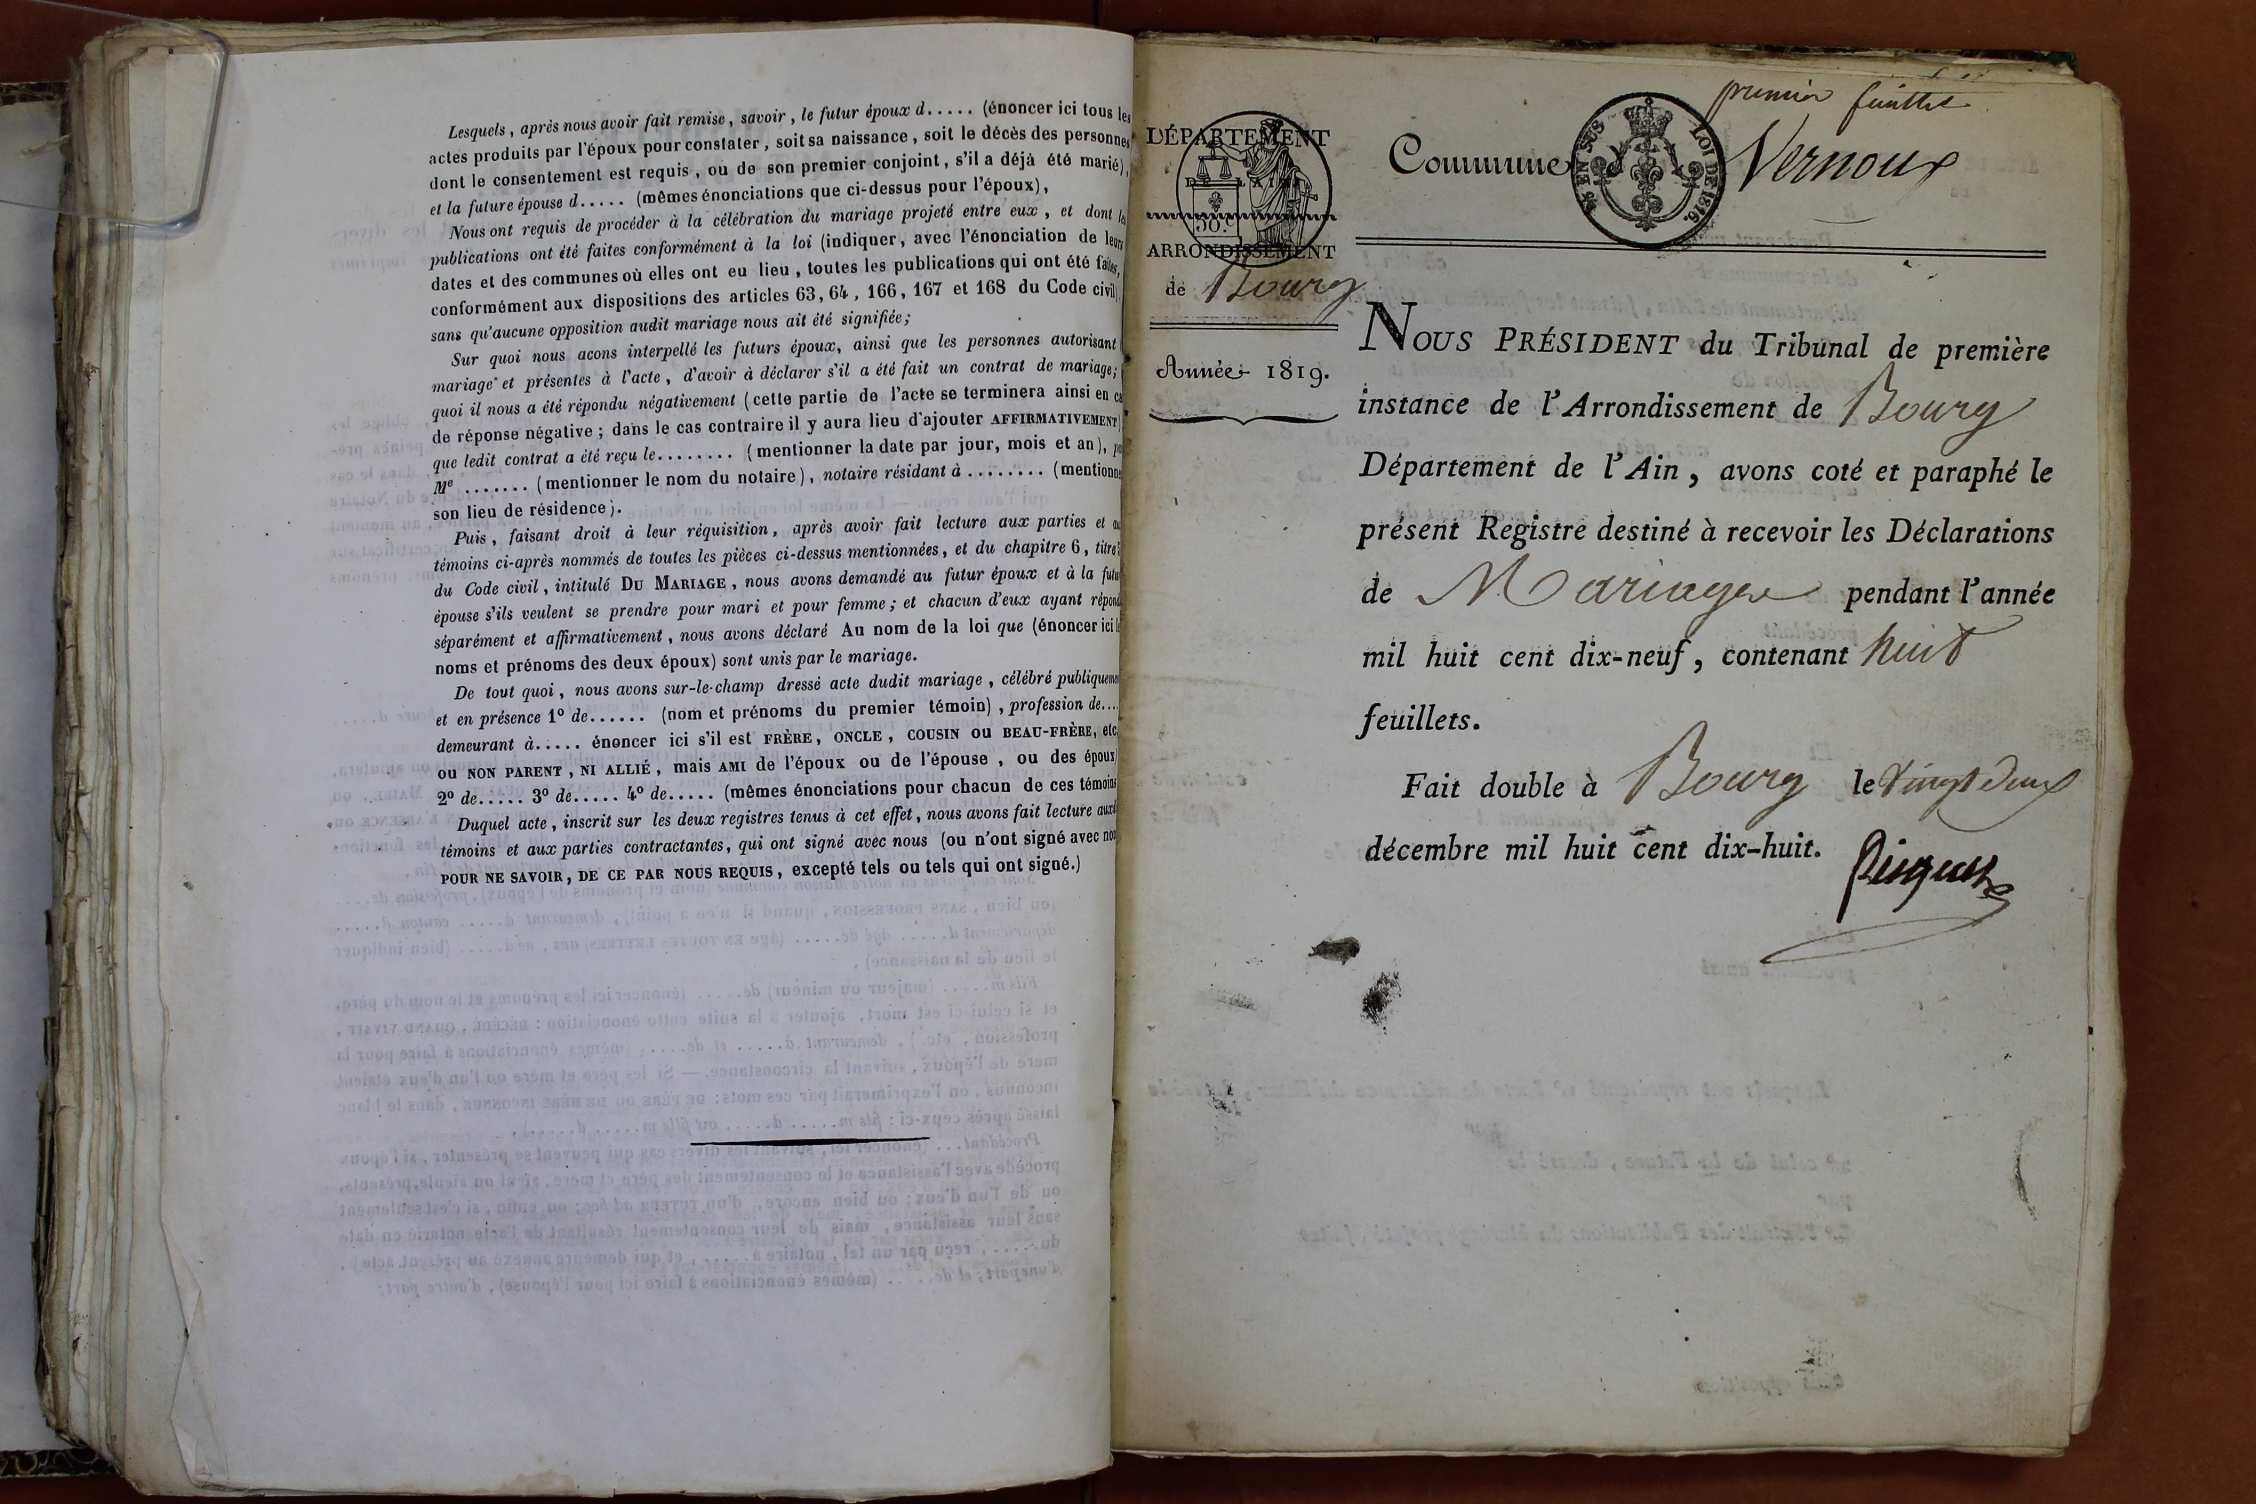 Lesquels, après nous avoir fait remise, savoir, le futur époux d..... (énoncer ici tous les
actes produits par l'époux pour constater, soit sa naissance, soit le décès des personnes
dont le consentement est requis, ou de son premier conjoint, s'il a déjà été marié),
et la future épouse d..... (mêmes énonciations que ci-dessus pour l'époux),
Nous ont requis de procéder à la célébration du mariage projeté entre eux, et dont les
publications ont été faites conformément à la loi (indiquer, avec l'énonciation de leurs
dates et des communes où elles ont eu lieu, toutes les publications qui ont été faites,
conformément aux dispositions des articles 63, 64, 166, 167 et 168 du Code civil),
sans qu'aucune opposition audit mariage nous ait été signifiée;
Sur quoi nous avons interpellé les futurs époux, ainsi que les personnes autorisant
mariage et présentes à l'acte, d'avoir à déclarer s'il a été fait un contrat de mariage;
quoi il nous a été répondu négativement (cette partie de l'acte se terminera ainsi en ca
de réponse négative; dans le cas contraire il y aura lieu d'ajouter AFFIRMATIVEMENT)
que ledit contrat a été reçu le........ (mentionner la date par jour, mois et an), pa
Me ....... (mentionner le nom du notaire), notaire résidant à ........ (mentionner
son lieu de résidence).
Puis, faisant droit à leur réquisition, après avoir fait lecture aux parties et au
témoins ci-après nommés de toutes les pièces ci-dessus mentionnées, et du chapitre 6, titre
du Code civil, intitulé DU MARIAGE, nous avons demandé au futur époux et à la futu
épouse s'ils veulent se prendre pour mari et pour femme; et chacun d'eux ayant répond
séparément et affirmativement, nous avons déclaré Au nom de la loi que (énoncer ici l
noms et prénoms des deux époux) sont unis par le mariage.
De tout quoi, nous avons sur-le-champ dressé acte dudit mariage, célébré publiquemen
et en présence 1o de...... (nom et prénoms du premier témoin), profession de....
demeurant à..... énoncer ici s'il est FRÈRE, ONCLE, COUSIN ou BEAU-FRÈRE, etc.
ou NON PARENT, NI ALLIÉ, mais AMI de l'époux ou de l'épouse, ou des époux
2o de..... 3o de..... 4o de..... (mêmes énonciations pour chacun de ces témoins
Duquel acte, inscrit sur les deux registres tenus à cet effet, nous avons fait lecture aux
témoins et aux parties contractantes, qui ont signé avec nous (ou n'ont signé avec nou
POUR NE SAVOIR, DE CE PAR NOUS REQUIS, excepté tels ou tels qui ont signé.)
premier feuillet
DÉPARTEMENT
DE L'AIN
50.
ARRONDISSEMENT
de Bourg
Année 1819.
Commune d Vernoux
EN SUS LOI DE 1816.
NOUS PRÉSIDENT du Tribunal de première
instance de l'Arrondissement de Bourg
Département de l'Ain, avons coté et paraphé le
présent Registre destiné à recevoir les Déclarations
de Mariages pendant l'année
mil huit cent dix-neuf, contenant huit
feuillets.
Fait double à Bourg le vingt deux
décembre mil huit cent dix-huit.